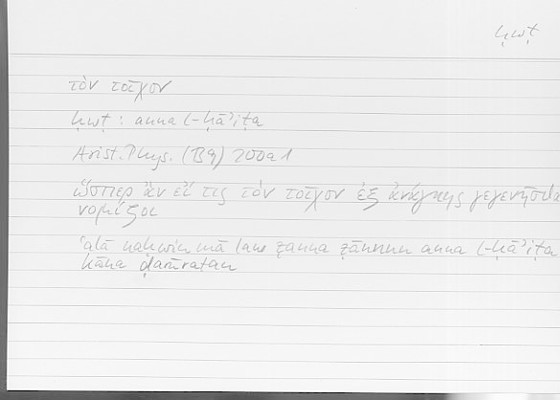 ḥwṭ
τὸν τοῖχον
ḥwṭ : anna l-ḥāʾiṭa
Arist. Phys. (B9) 200a1
ὥσπερ ἂν εἴ τις τὸν τοῖχον ἐξ ἀνάγκης γεγενῆσθα
νομίζοι
ʿalā naḥwin mā law ẓanna ẓānnun anna l-ḥāʾiṭa
kāna ḍarūratan